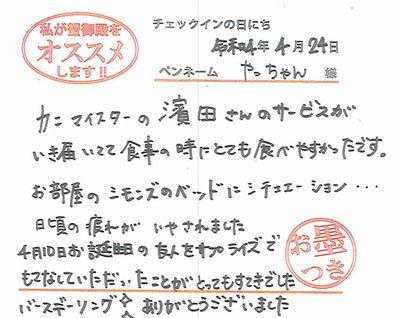 私が蟹御殿を
オススメ
します!!
チェックインの日にち
令和4年 4月 24日
ペンネーム やっちゃん 様
カニマイスターの濱田さんのサービスが
いき届いてて食事の時にとても食べやすかったです。
お部屋のシモンズのベッドにシチュエーション・・・
日頃の疲れがいやされました
4月10日お誕生日の友人をサプライズで
もてなしていただいたことがとってもすてきでした
バースデーソング ありがとうございました
お墨
つき